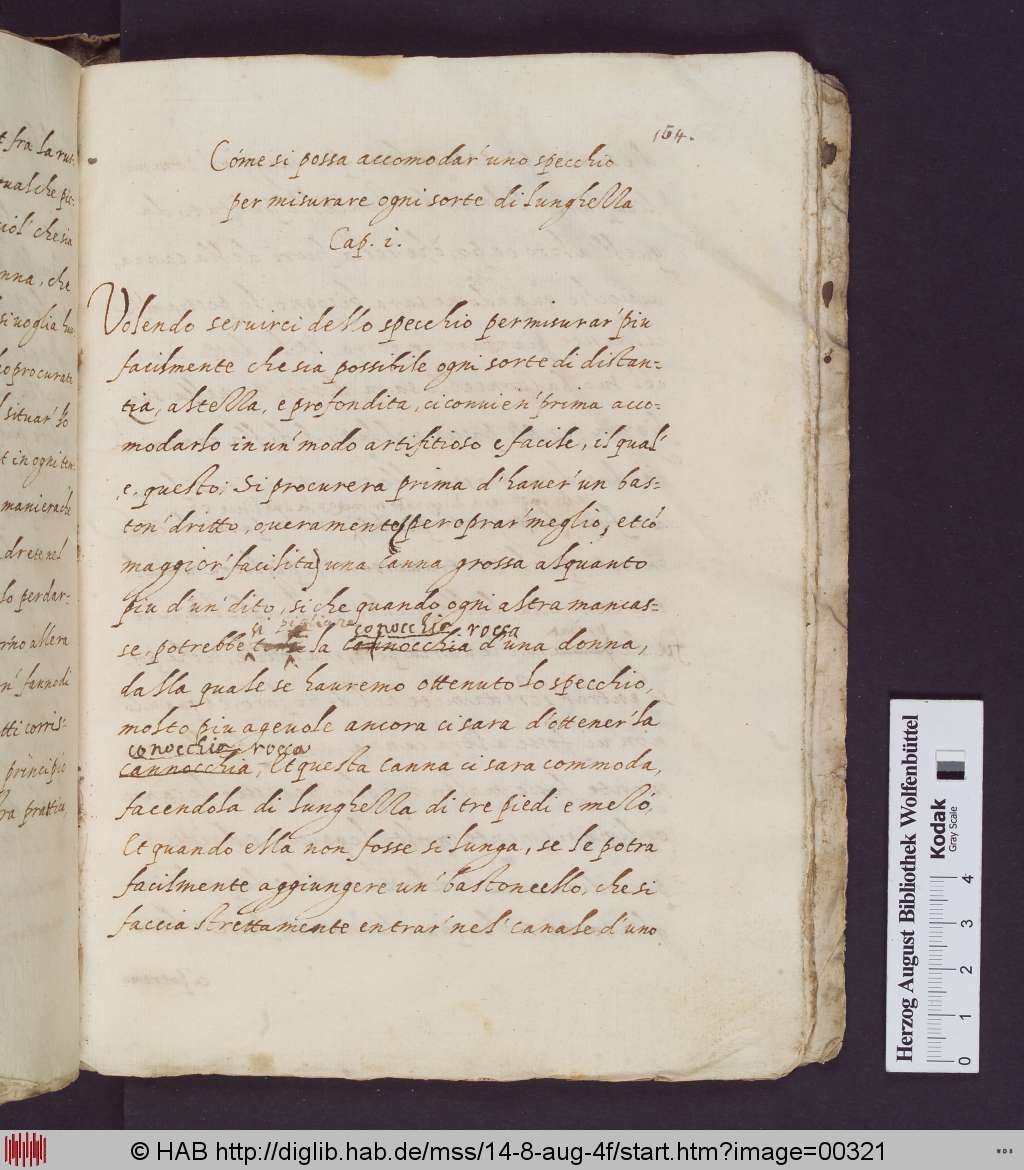 t fra la rut-
qual che pic-
ciol' che sia
nna, che
si uoglia hu
o procurati
l situar' lo
t in ogni ten
maniera che
drete nel
lo perdar-
rno all'era
n' fanno di
tti corris-
principio
ra prattia,
164.
Cóme si possa accomodar' uno specchio
per misurare ogni sorte di lunghezza
Cap. i.
Volendo seruirci dello specchio per misurar' piu
facilmente che sia possibile ogni sorte di distan-
tia, altezza, e profondita, ci conuien' prima acco-
modarlo in un' modo artifitioso e facile, il qual'
e, questo; Si procurera prima d'hauer' un bas-
ton' dritto, oueramente (per oprar' meglio, et cō
maggior' facilita) una canna grossa alquanto
piu d'un' dito, si che quando ogni altra mancas-
si pigliare conocchia rocca
se, potrebbe la cannocchia d'una donna,
dalla quale se hauremo ottenuto lo specchio,
molto piu ageuole ancora ci sara d'ottener' la
conocchia rocca
cannocchia, Et questa canna ci sara commoda,
facendola di lunghezza di tre piedi e mezo,
Et quando ella non fosse si lunga, se le potra
facilmente aggiungere un' bastoncello, che si
faccia strettamente entrar' nel' canale d'uno
Herzog August Bibliothek Wolfenbüttel
Kodak
Gray Scale
0 1 2 3 4
© HAB http://diglib.hab.de/mss/14-8-aug-4f/start.htm?image=00321